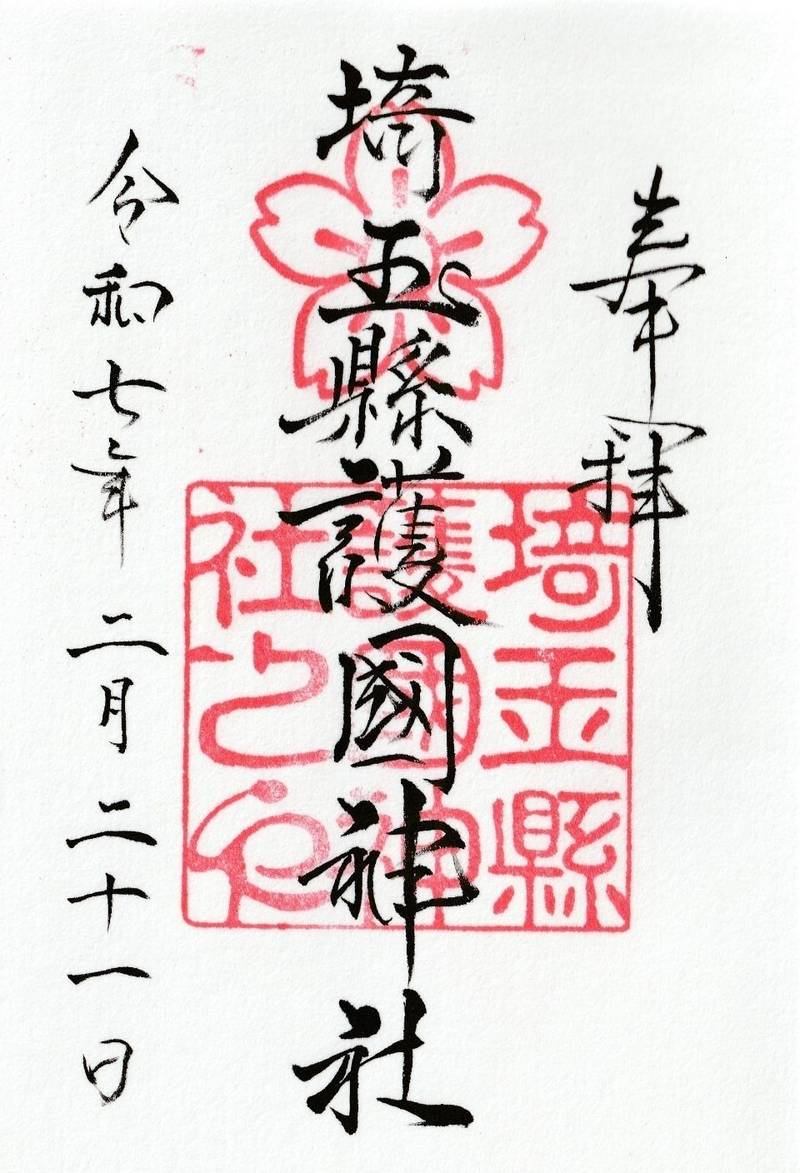 奉拝
埼玉縣護國神社
令和七年 二月 二十一日
埼玉縣
護國神
社之印